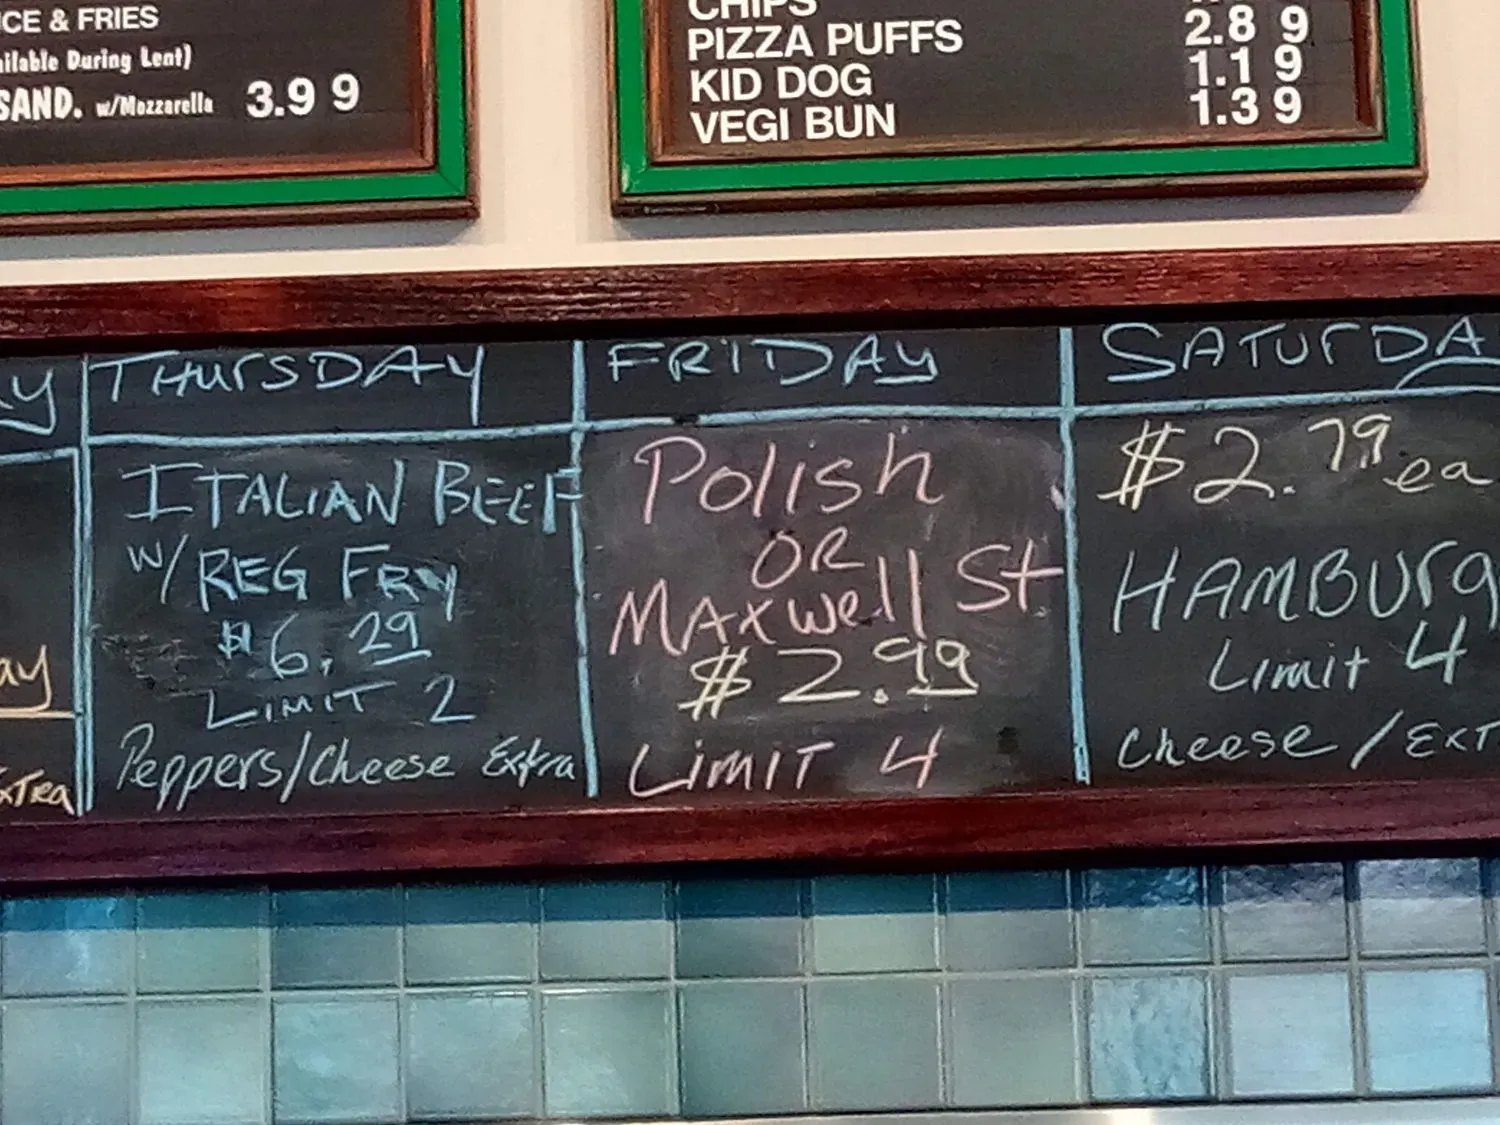 CE & FRIES
ailable During Lent)
SAND. w/Mozzarella 3.99
CHIPS
PIZZA PUFFS 2.89
KID DOG 1.19
VEGI BUN 1.39
AY
AY
EXTRA
THURSDAY
ITALIAN BEEF
W/ REG FRY
$6.29
LIMIT 2
Peppers/Cheese Extra
FRIDAY
Polish
OR
MAXWell St.
$2.99
LIMIT 4
SATURDA
$2.79 ea
HAMBURG
Limit 4
Cheese / EXT